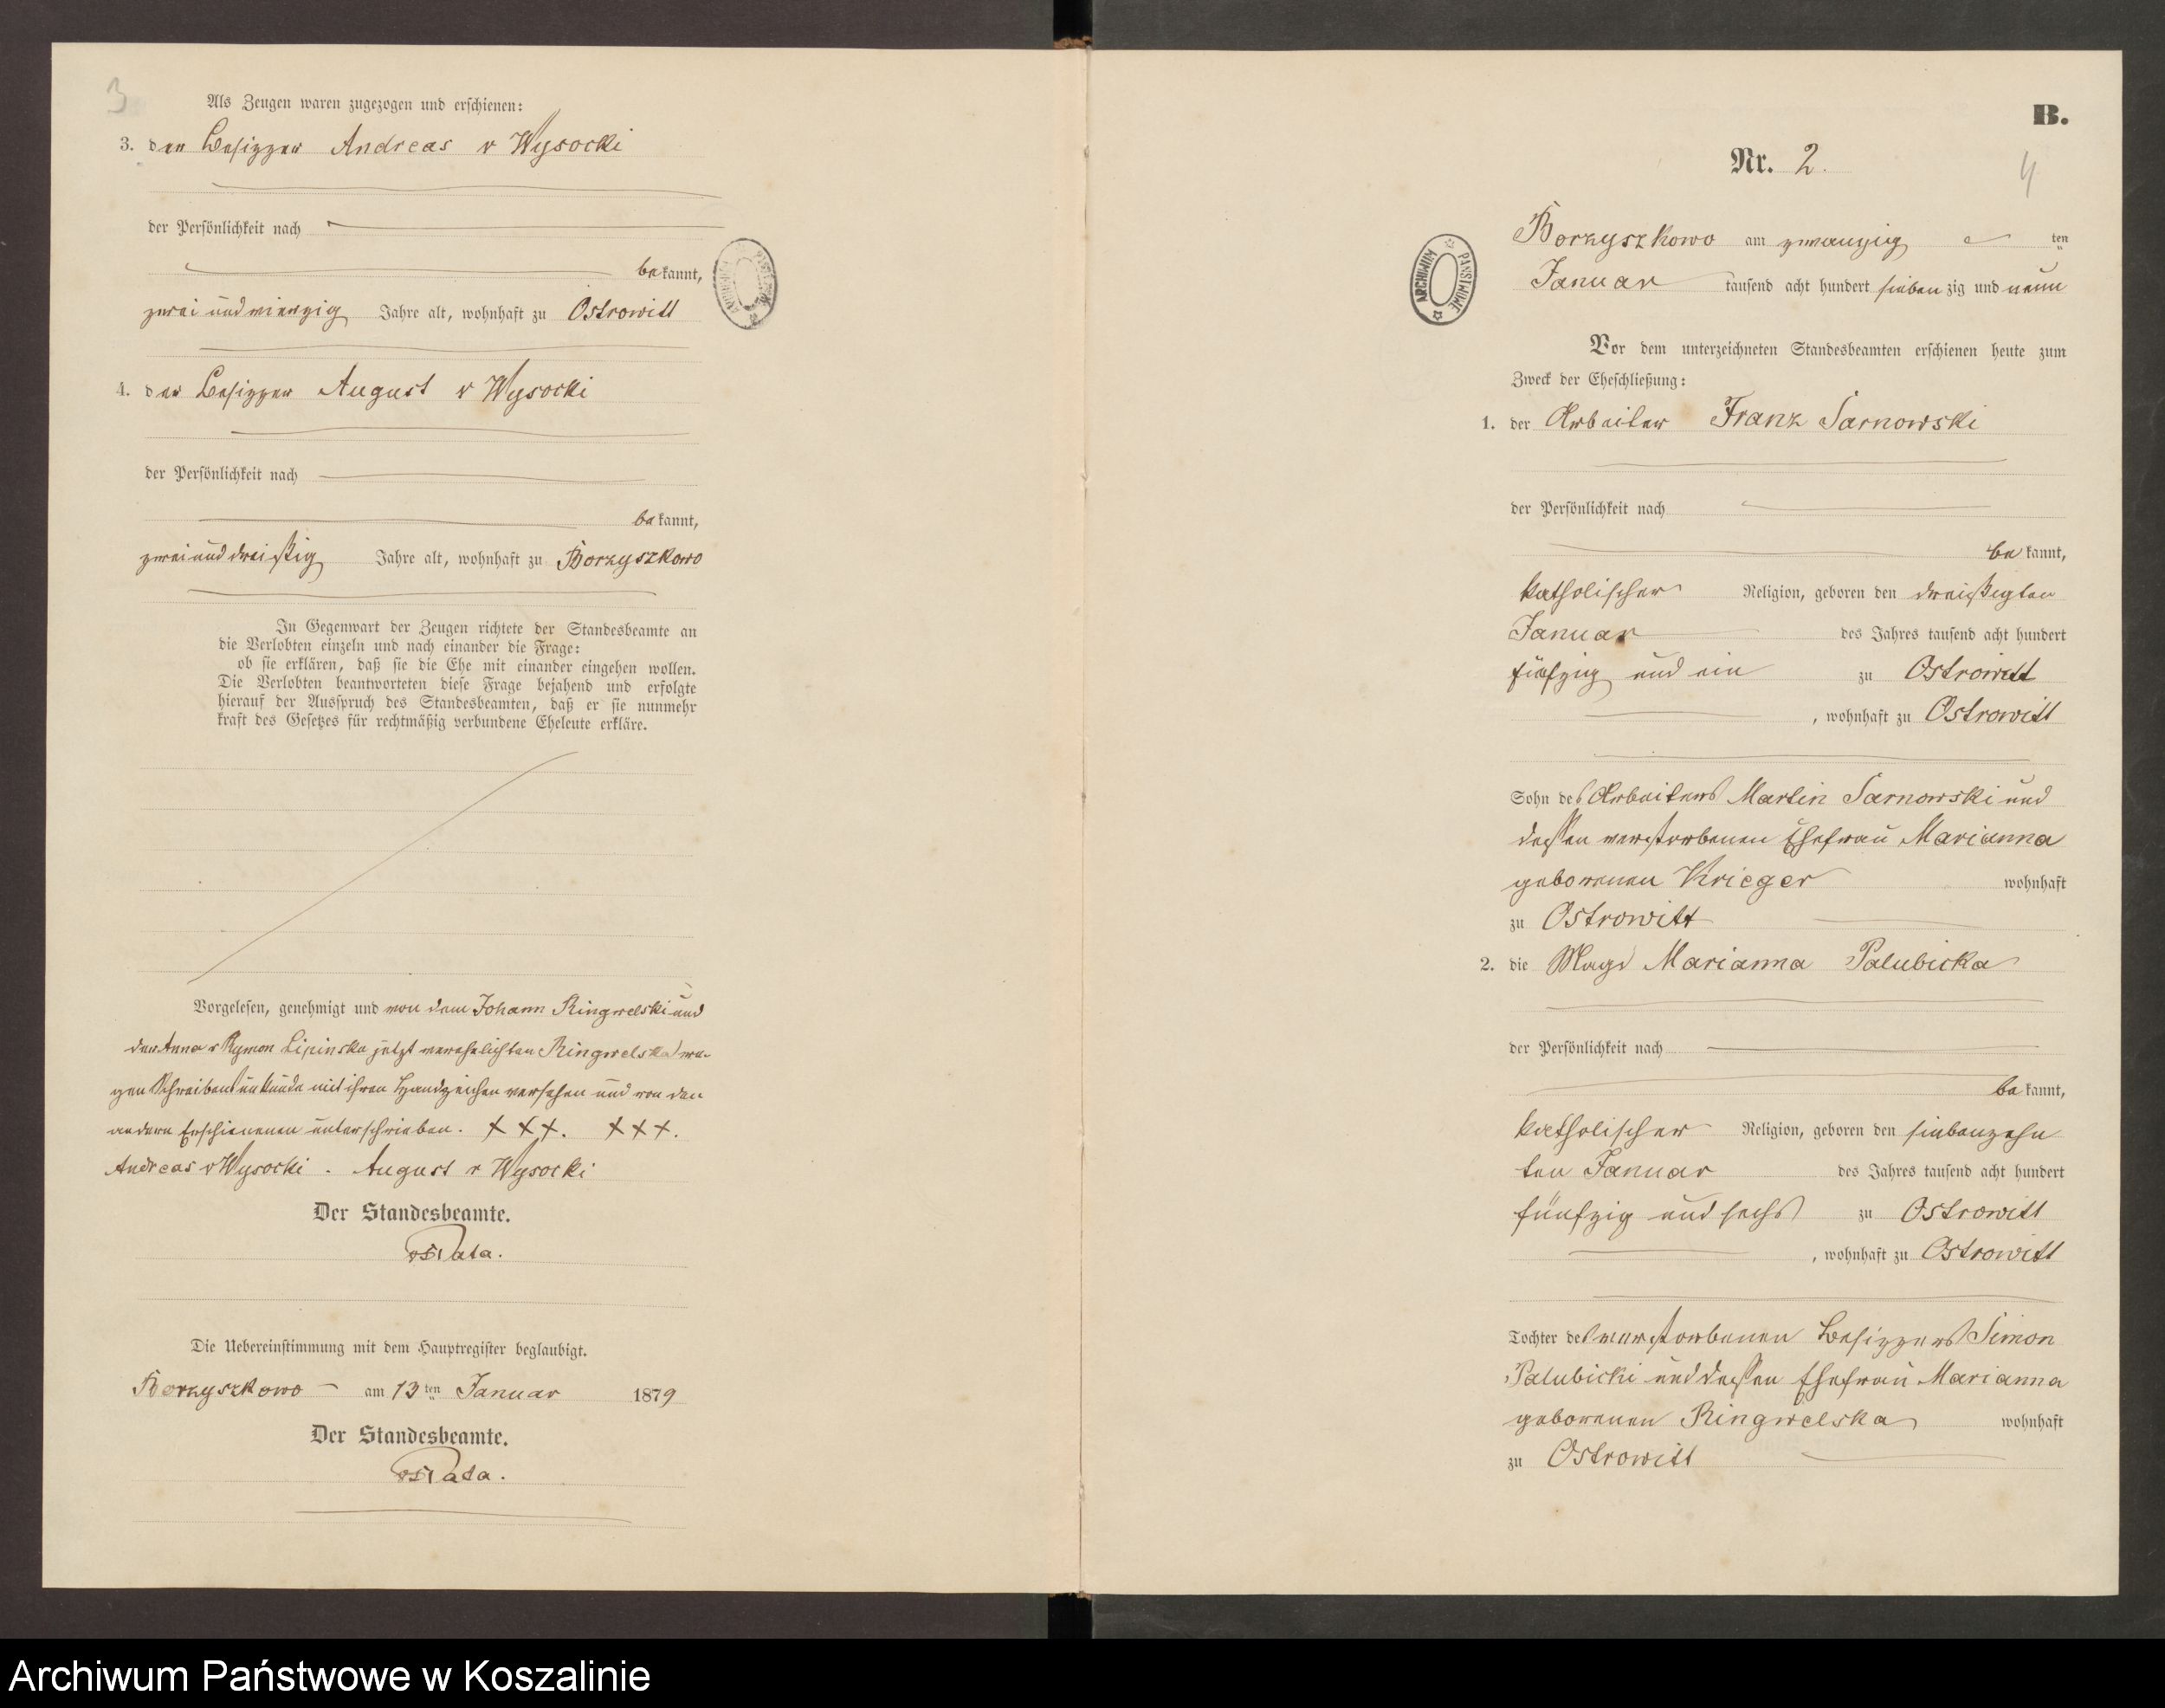 3
Als Zeugen waren zugezogen und erschienen:
3. der Besitzer Andreas v Wysocki
der Persönlichkeit nach
bekannt,
zwei und vierzig Jahre alt, wohnhaft zu Ostrowitt
4. der Besitzer August v Wysocki
der Persönlichkeit nach
bekannt,
zwei und dreißig Jahre alt, wohnhaft zu Borzyszkowo
In Gegenwart der Zeugen richtete der Standesbeamte an
die Verlobten einzeln und nach einander die Frage:
ob sie erklären, daß sie die Ehe mit einander eingehen wollen.
Die Verlobten beantworteten diese Frage bejahend und erfolgte
hierauf der Ausspruch des Standesbeamten, daß er sie nunmehr
kraft des Gesetzes für rechtmäßig verbundene Eheleute erkläre.
Vorgelesen, genehmigt und von dem Johann Ringwelski und
der Anna v Rymon Lipinska jetzt verehelichten Ringwelska we-
gen Schreibensunkunde mit ihren Handzeichen versehen und von den
andern Erschienenen unterschrieben. XXX. XXX.
Andreas v Wysocki . August v Wysocki
Der Standesbeamte.
Die Uebereinstimmung mit dem Hauptregister beglaubigt.
Borzyszkowo am 13ten Januar 1879
Der Standesbeamte.
ARCHIWUM PAŃSTWOWE
B.
4
Nr. 2.
Borzyszkowo am zwanzig ten
Januar tausend acht hundert siebenzig und neun
Vor dem unterzeichneten Standesbeamten erschienen heute zum
Zweck der Eheschließung:
1. der Arbeiter Franz Sarnowski
der Persönlichkeit nach
bekannt,
katholischer Religion, geboren den dreißigten
Januar des Jahres tausend acht hundert
fünfzig und ein zu Ostrowitt
, wohnhaft zu Ostrowitt
Sohn des Arbeiters Martin Sarnowski und
dessen verstorbenen Ehefrau Marianna
geborenen Krieger wohnhaft
zu Ostrowitt
2. die Magd Marianna Palubicka
der Persönlichkeit nach
bekannt,
katholischer Religion, geboren den siebenzehn
ten Januar des Jahres tausend acht hundert
fünfzig und sechs zu Ostrowitt
, wohnhaft zu Ostrowitt
Tochter des verstorbenen Besitzers Simon
Palubicki und dessen Ehefrau Marianna
geborenen Ringwelska wohnhaft
zu Ostrowitt
Archiwum Państwowe w Koszalinie